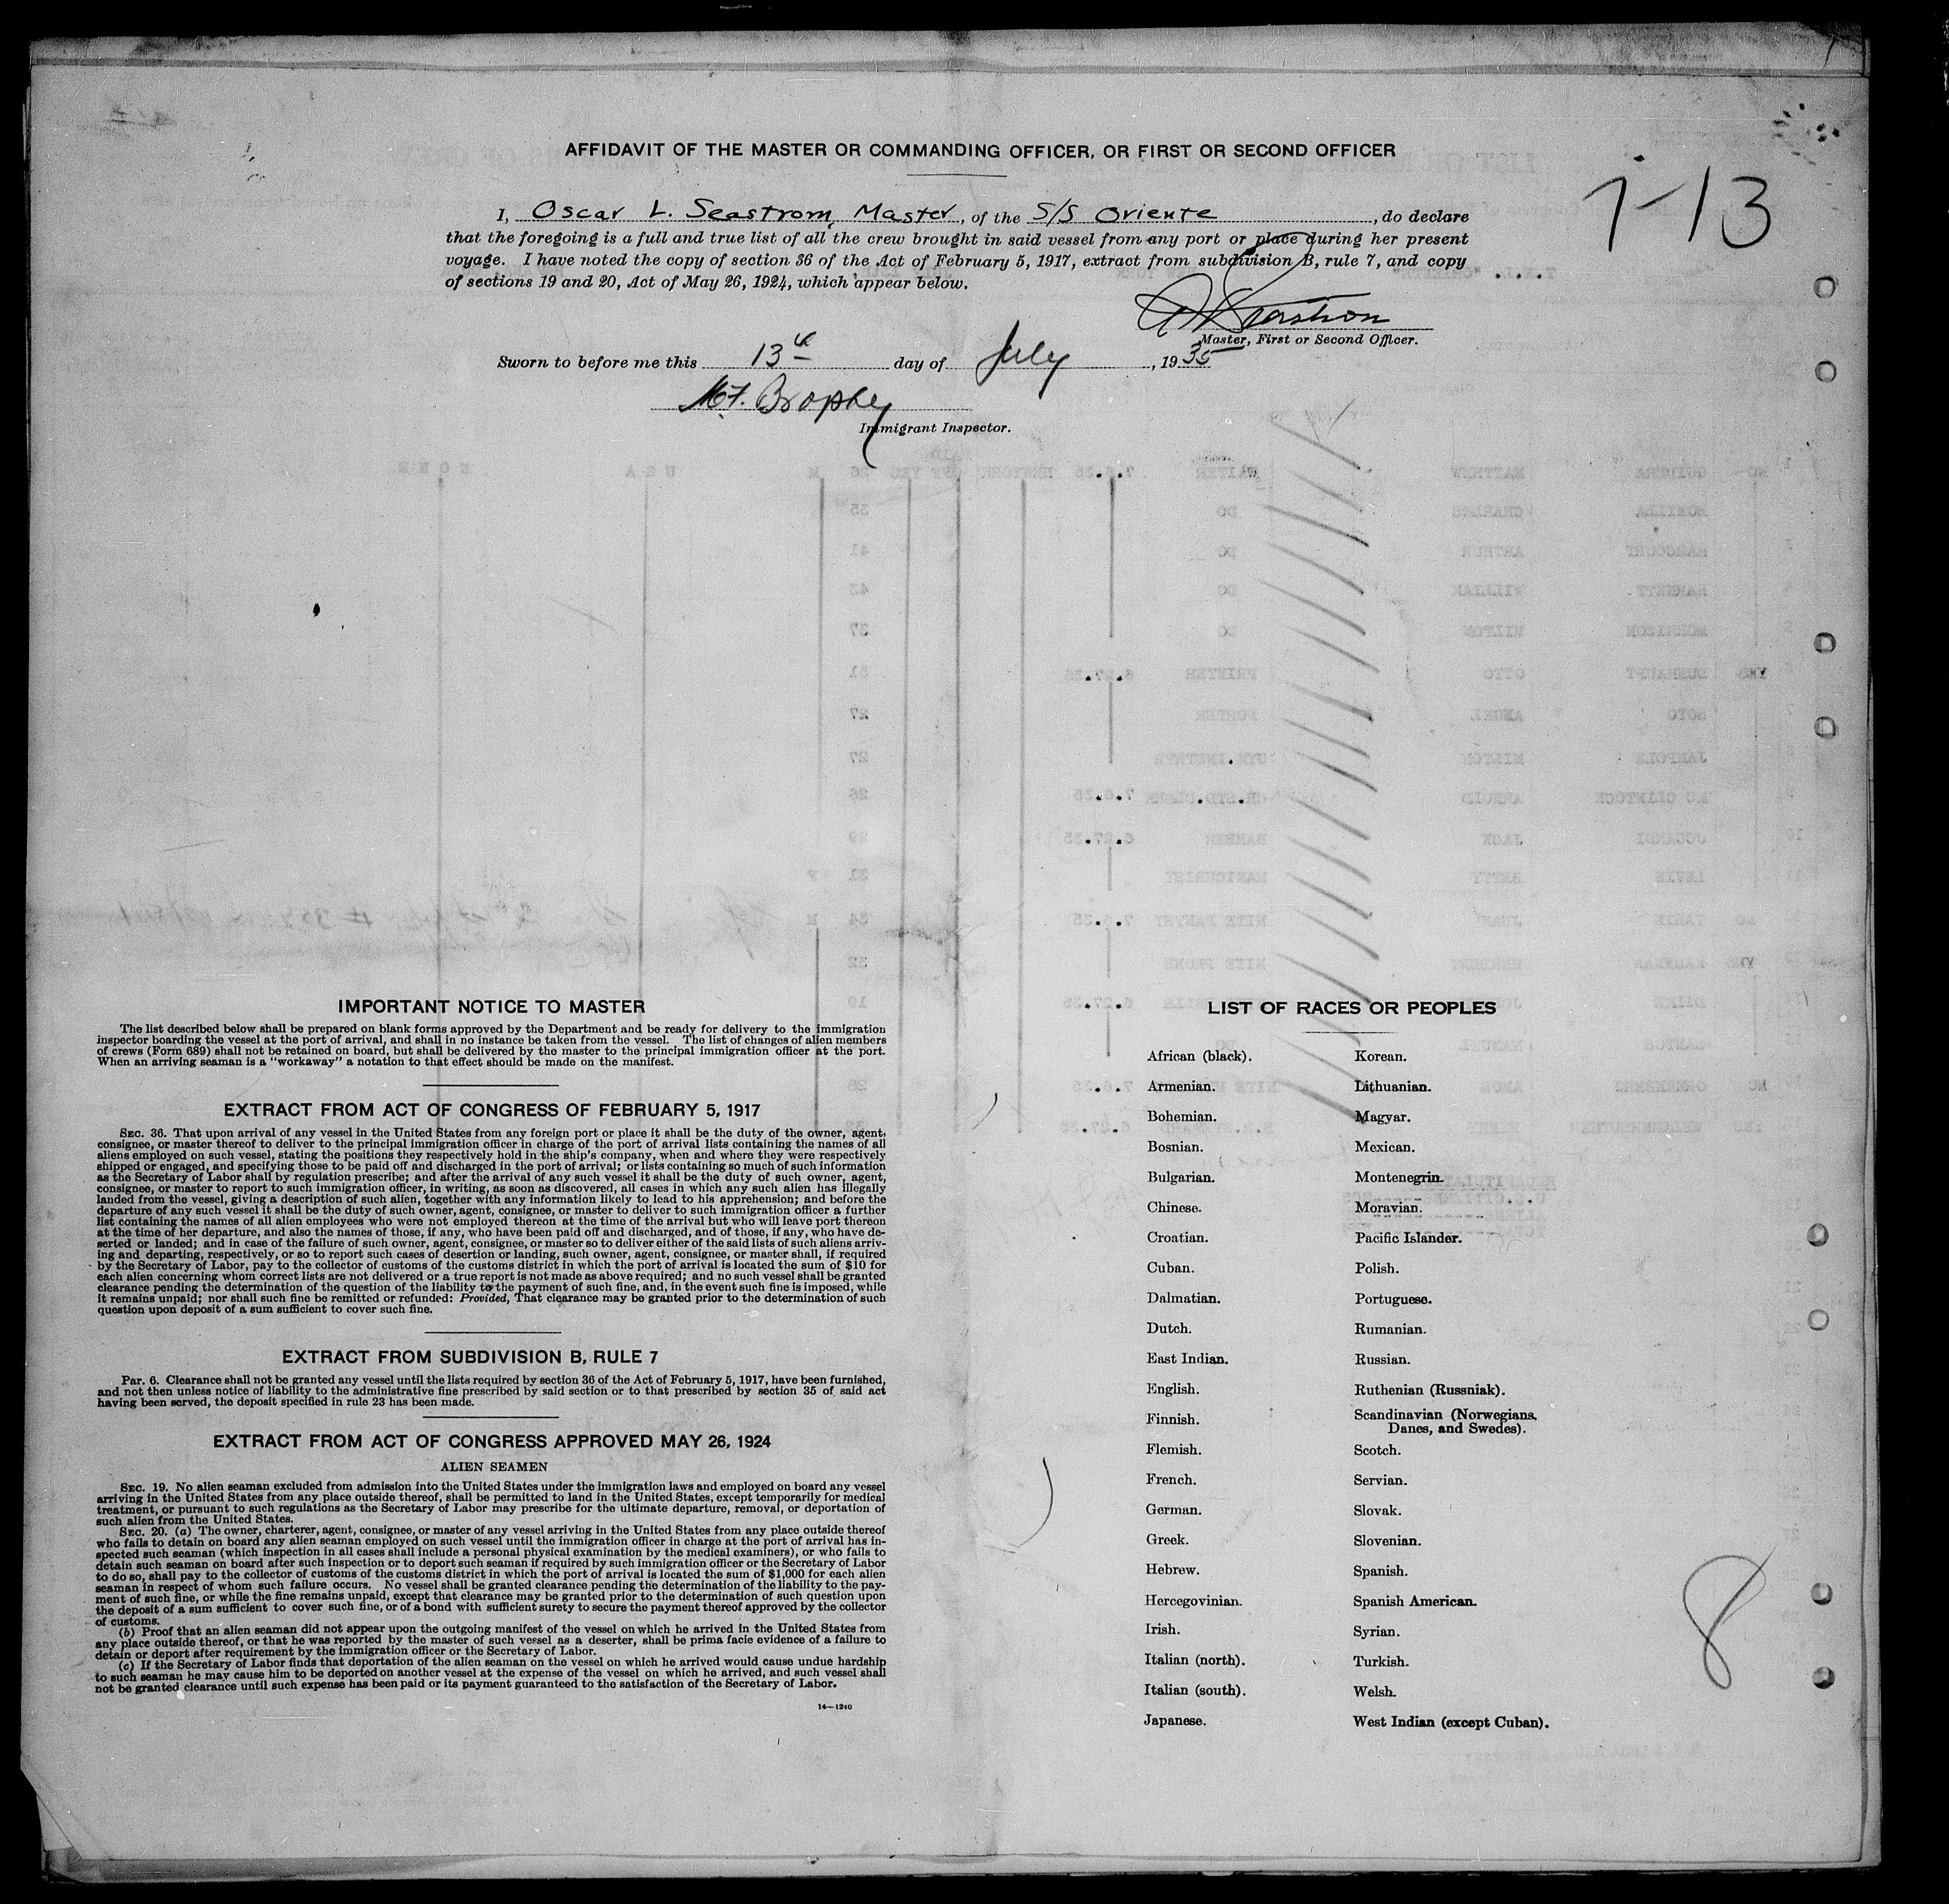 AFFIDAVIT OF THE MASTER OR COMMANDING OFFICER, OR FIRST OR SECOND OFFICER
7-13
I, Oscar L. Seastrom, Master, of the S/S Oriente, do declare
that the foregoing is a full and true list of all the crew brought in said vessel from any port or place during her present
voyage. I have noted the copy of section 36 of the Act of February 5, 1917, extract from subdivision B, rule 7, and copy
of sections 19 and 20, Act of May 26, 1924, which appear below.
Seastrom
Master, First or Second Officer.
Sworn to before me this 13th day of July, 1935
M.F. Brophy
Immigrant Inspector.
IMPORTANT NOTICE TO MASTER
The list described below shall be prepared on blank forms approved by the Department and be ready for delivery to the immigration
inspector boarding the vessel at the port of arrival, and shall in no instance be taken from the vessel. The list of changes of alien members
of crews (Form 689) shall not be retained on board, but shall be delivered by the master to the principal immigration officer at the port.
When an arriving seaman is a "workaway" a notation to that effect should be made on the manifest.
EXTRACT FROM ACT OF CONGRESS OF FEBRUARY 5, 1917
SEC. 36. That upon arrival of any vessel in the United States from any foreign port or place it shall be the duty of the owner, agent,
consignee, or master thereof to deliver to the principal immigration officer in charge of the port of arrival lists containing the names of all
aliens employed on such vessel, stating the positions they respectively hold in the ship's company, when and where they were respectively
shipped or engaged, and specifying those to be paid off and discharged in the port of arrival; or lists containing so much of such information
as the Secretary of Labor shall by regulation prescribe; and after the arrival of any such vessel it shall be the duty of such owner, agent,
consignee, or master to report to such immigration officer, in writing, as soon as discovered, all cases in which any such alien has illegally
landed from the vessel, giving a description of such alien, together with any information likely to lead to his apprehension; and before the
departure of any such vessel it shall be the duty of such owner, agent, consignee, or master to deliver to such immigration officer a further
list containing the names of all alien employees who were not employed thereon at the time of the arrival but who will leave port thereon
at the time of her departure, and also the names of those, if any, who have been paid off and discharged, and of those, if any, who have de-
serted or landed; and in case of the failure of such owner, agent, consignee, or master so to deliver either of the said lists of such aliens arriv-
ing and departing, respectively, or so to report such cases of desertion or landing, such owner, agent, consignee, or master shall, if required
by the Secretary of Labor, pay to the collector of customs of the customs district in which the port of arrival is located the sum of $10 for
each alien concerning whom correct lists are not delivered or a true report is not made as above required; and no such vessel shall be granted
clearance pending the determination of the question of the liability to the payment of such fine, and, in the event such fine is imposed, while
it remains unpaid; nor shall such fine be remitted or refunded: Provided, That clearance may be granted prior to the determination of such
question upon deposit of a sum sufficient to cover such fine.
EXTRACT FROM SUBDIVISION B, RULE 7
Par. 6. Clearance shall not be granted any vessel until the lists required by section 36 of the Act of February 5, 1917, have been furnished,
and not then unless notice of liability to the administrative fine prescribed by said section or to that prescribed by section 35 of said act
having been served, the deposit specified in rule 23 has been made.
EXTRACT FROM ACT OF CONGRESS APPROVED MAY 26, 1924
ALIEN SEAMEN
SEC. 19. No alien seaman excluded from admission into the United States under the immigration laws and employed on board any vessel
arriving in the United States from any place outside thereof, shall be permitted to land in the United States, except temporarily for medical
treatment, or pursuant to such regulations as the Secretary of Labor may prescribe for the ultimate departure, removal, or deportation of
such alien from the United States.
SEC. 20. (a) The owner, charterer, agent, consignee, or master of any vessel arriving in the United States from any place outside thereof
who fails to detain on board any alien seaman employed on such vessel until the immigration officer in charge at the port of arrival has in-
spected such seaman (which inspection in all cases shall include a personal physical examination by the medical examiners), or who fails to
detain such seaman on board after such inspection or to deport such seaman if required by such immigration officer or the Secretary of Labor
to do so, shall pay to the collector of customs of the customs district in which the port of arrival is located the sum of $1,000 for each alien
seaman in respect of whom such failure occurs. No vessel shall be granted clearance pending the determination of the liability to the pay-
ment of such fine, or while the fine remains unpaid, except that clearance may be granted prior to the determination of such question upon
the deposit of a sum sufficient to cover such fine, or of a bond with sufficient surety to secure the payment thereof approved by the collector
of customs.
(b) Proof that an alien seaman did not appear upon the outgoing manifest of the vessel on which he arrived in the United States from
any place outside thereof, or that he was reported by the master of such vessel as a deserter, shall be prima facie evidence of a failure to
detain or deport after requirement by the immigration officer or the Secretary of Labor.
(c) If the Secretary of Labor finds that deportation of the alien seaman on the vessel on which he arrived would cause undue hardship
to such seaman he may cause him to be deported on another vessel at the expense of the vessel on which he arrived, and such vessel shall
not be granted clearance until such expense has been paid or its payment guaranteed to the satisfaction of the Secretary of Labor.
14—1240
LIST OF RACES OR PEOPLES
African (black).
Armenian.
Bohemian.
Bosnian.
Bulgarian.
Chinese.
Croatian.
Cuban.
Dalmatian.
Dutch.
East Indian.
English.
Finnish.
Flemish.
French.
German.
Greek.
Hebrew.
Hercegovinian.
Irish.
Italian (north).
Italian (south).
Japanese.
Korean.
Lithuanian.
Magyar.
Mexican.
Montenegrin.
Moravian.
Pacific Islander.
Polish.
Portuguese.
Rumanian.
Russian.
Ruthenian (Russniak).
Scandinavian (Norwegians,
Danes, and Swedes).
Scotch.
Servian.
Slovak.
Slovenian.
Spanish.
Spanish American.
Syrian.
Turkish.
Welsh.
West Indian (except Cuban).
8